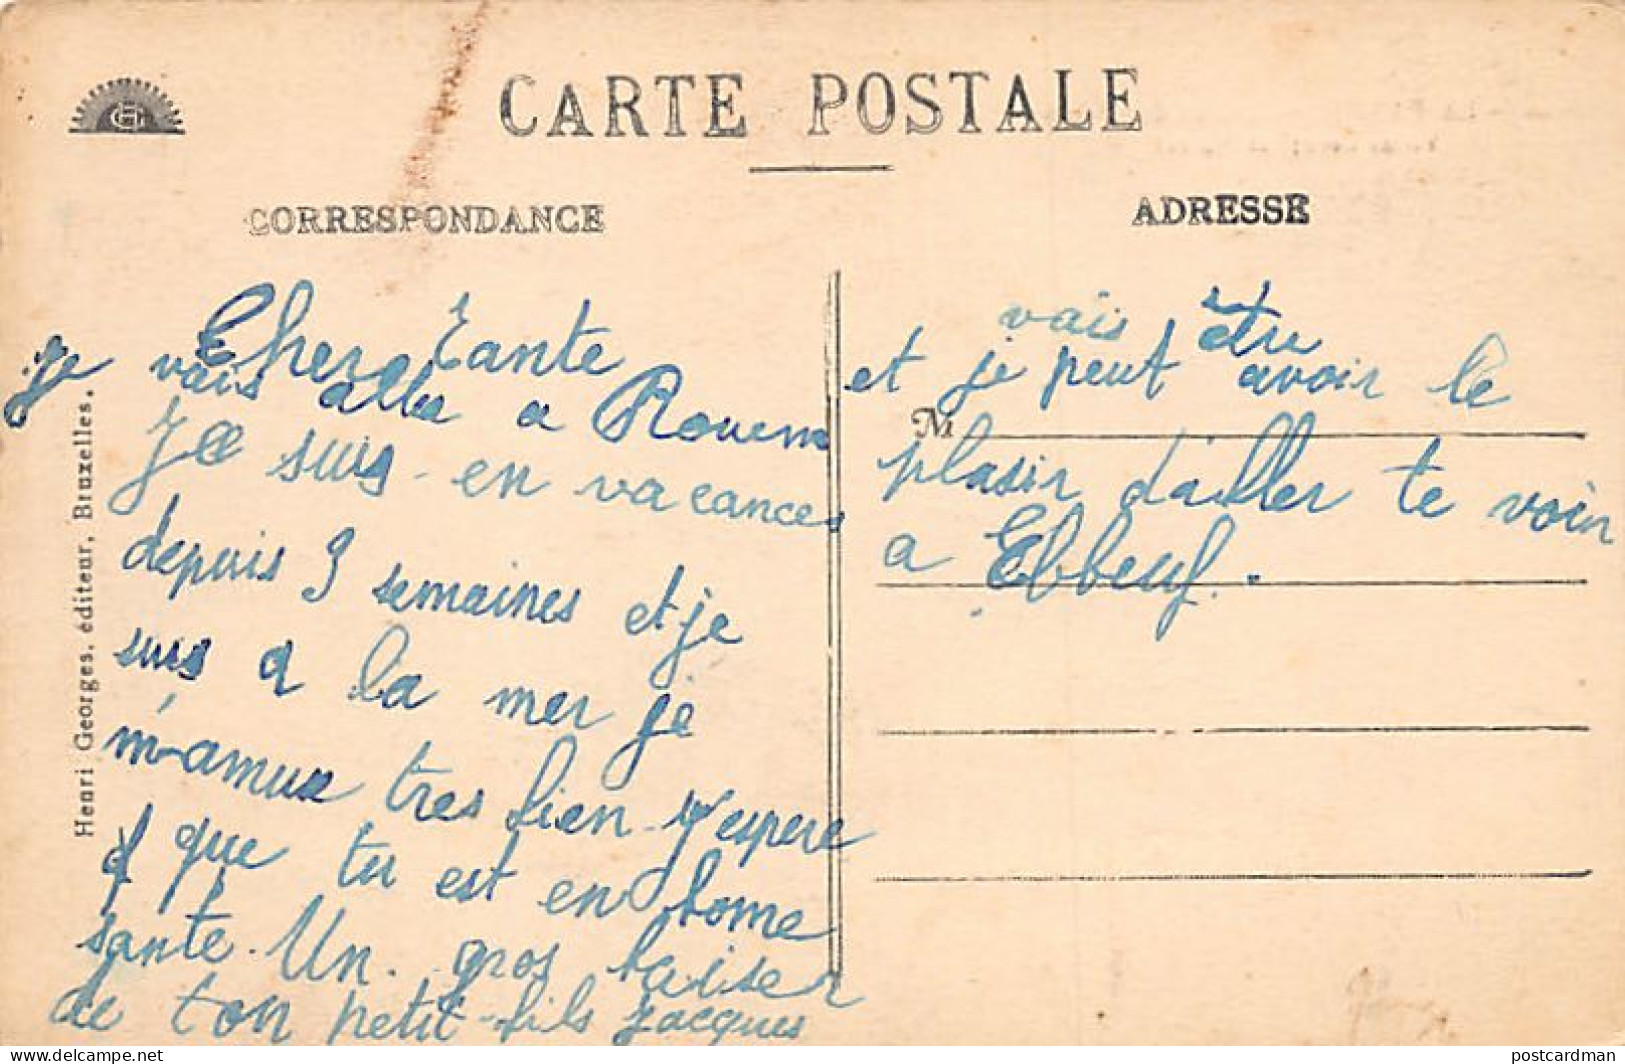 CARTE POSTALE
CORRESPONDANCE
ADRESSE
Cher Tante
je vais alle a Rouen
Je suis en vacances
depuis 3 semaines et je
suis a la mer je
m'amuse tres bien J'espere
que tu est en bonne
santé. Un gros baiser
de ton petit-fils Jacques
vais être
et je peut avoir le
M
plasir d'aller te voir
a Elbeuf.
Henri Georges, éditeur, Bruxelles.
postcardman